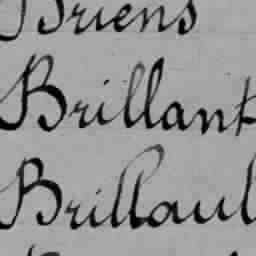 Briens
Brillant
Brillaul